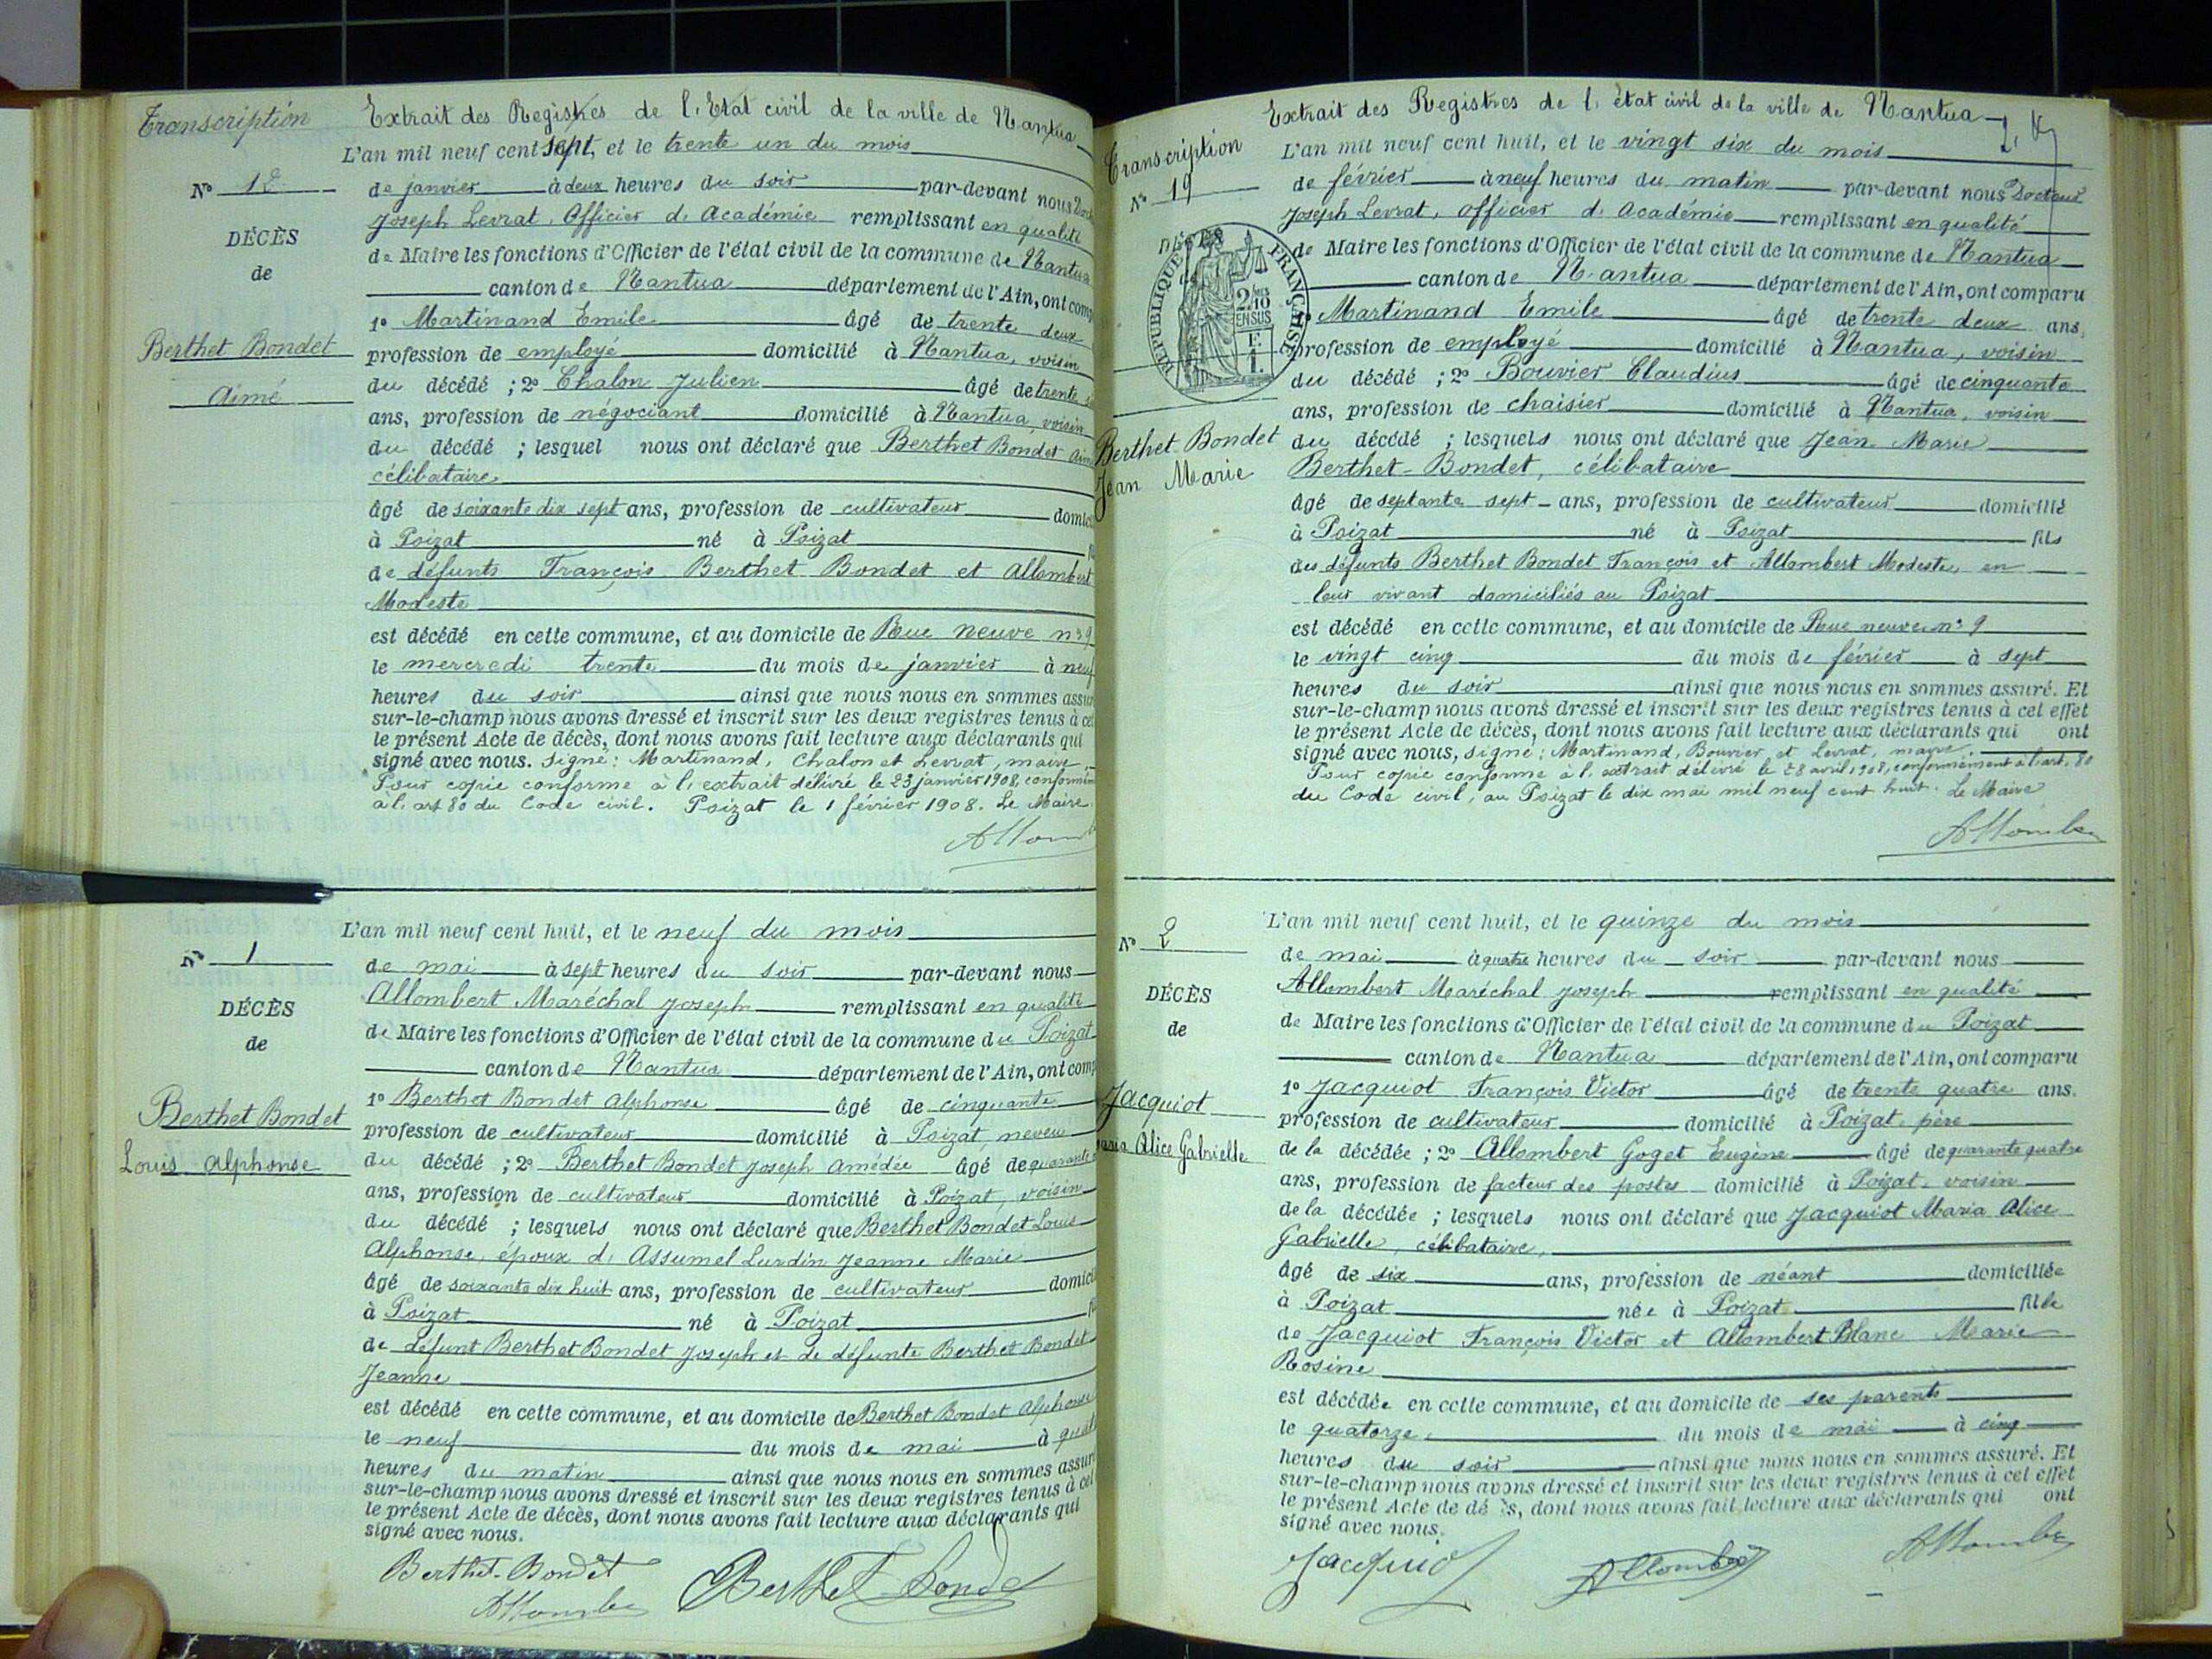 Transcription
Extrait des Registres de l'Etat civil de la ville de Nantua
L'an mil neuf cent sept, et le trente un du mois
Nº
de janvier à deux heures du soir par-devant nous
Joseph Levrat, Officier d'Académie remplissant en qualité
DÉCÈS
de Maire les fonctions d'Officier de l'état civil de la commune de Nantua
de
canton de Nantua département de l'Ain, ont comp
1º Martinand Emile âgé de trente deux
Berthet Bondet
profession de employé domicilié à Nantua, voisin
du décédé ; 2º Chalon Julien âgé de trente
Aimé
ans, profession de négociant domicilié à Nantua, voisin
du décédé ; lesquel nous ont déclaré que Berthet Bondet Aimé
célibataire
âgé de soixante dix sept ans, profession de cultivateur domici
à Poizat né à Poizat
de défunts François Berthet Bondet et Allombert
Modeste
est décédé en cette commune, et au domicile de Rue neuve nº 9
le mercredi trente du mois de janvier à neuf
heures du soir ainsi que nous nous en sommes assur
sur-le-champ nous avons dressé et inscrit sur les deux registres tenus à cet
le présent Acte de décès, dont nous avons fait lecture aux déclarants qui
signé avec nous. Signé : Martinand, Chalon et Levrat, maire.
Pour copie conforme à l'extrait délivré le 23 janvier 1908, conformém
à l'art 80 du Code civil. Poizat le 1 février 1908. Le Maire
Allomb
L'an mil neuf cent huit, et le neuf du mois
Nº 1
de mai à sept heures du soir par-devant nous
Allombert Maréchal Joseph remplissant en qualité
DÉCÈS
de Maire les fonctions d'Officier de l'état civil de la commune du Poizat
de
canton de Nantua département de l'Ain, ont comp
1º Berthet Bondet Alphonse âgé de cinquante
Berthet Bondet
profession de cultivateur domicilié à Poizat, neveu
Louis Alphonse
du décédé ; 2º Berthet Bondet Joseph Amédée âgé de quarante
ans, profession de cultivateur domicilié à Poizat, voisin
du décédé ; lesquels nous ont déclaré que Berthet Bondet Louis
Alphonse, époux d'Assumel Lurdin Jeanne Marie
âgé de soixante dix huit ans, profession de cultivateur domici
à Poizat né à Poizat
de défunt Berthet Bondet Joseph et de défunte Berthet Bondet
Jeanne
est décédé en cette commune, et au domicile de Berthet Bondet Alphonse
le neuf du mois de mai à
heures du matin ainsi que nous nous en sommes assur
sur-le-champ nous avons dressé et inscrit sur les deux registres tenus à cet
le présent Acte de décès, dont nous avons fait lecture aux déclarants qui
signé avec nous.
Berthet-Bondet
Berthet-Bondet
Allombe
Extrait des Registres de l'état civil de la ville de Nantua
Transcription
L'an mil neuf cent huit, et le vingt six du mois
Nº 19
de février à neuf heures du matin par-devant nous Docteur
Joseph Levrat, officier d'Académie remplissant en qualité
DÉCÈS
de Maire les fonctions d'Officier de l'état civil de la commune de Nantua
RÉPUBLIQUE FRANÇAISE
2/10 EN SUS
canton de Nantua département de l'Ain, ont comparu
1º Martinand Emile âgé de trente deux ans,
profession de employé domicilié à Nantua, voisin
du décédé ; 2º Bouvier Claudius âgé de cinquante
ans, profession de chaisier domicilié à Nantua, voisin
Berthet-Bondet
Jean Marie
du décédé ; lesquels nous ont déclaré que Jean Marie
Berthet-Bondet, célibataire
âgé de septante sept ans, profession de cultivateur domicilié
à Poizat né à Poizat fils
des défunts Berthet Bondet François et Allombert Modeste, en
leur vivant domiciliés au Poizat
est décédé en cette commune, et au domicile de Rue neuve nº 9
le vingt cinq du mois de février à sept
heures du soir ainsi que nous nous en sommes assuré. Et
sur-le-champ nous avons dressé et inscrit sur les deux registres tenus à cet effet
le présent Acte de décès, dont nous avons fait lecture aux déclarants qui ont
signé avec nous, signé : Martinand, Bouvier et Levrat, maire.
Pour copie conforme à l'extrait délivré le 28 avril 1908, conformément à l'art. 80
du Code civil, au Poizat le dix mai mil neuf cent huit. Le Maire
Allombe
L'an mil neuf cent huit, et le quinze du mois
Nº 2
de mai à quatre heures du soir par-devant nous
Allombert Maréchal Joseph remplissant en qualité
DÉCÈS
de Maire les fonctions d'Officier de l'état civil de la commune du Poizat
de
canton de Nantua département de l'Ain, ont comparu
Jacquiot
1º Jacquiot François Victor âgé de trente quatre ans.
profession de cultivateur domicilié à Poizat, père
aria Alice Gabrielle
de la décédée ; 2º Allombert Goget Eugène âgé de quarante quatre
ans, profession de facteur des postes domicilié à Poizat, voisin
de la décédée ; lesquels nous ont déclaré que Jacquiot Maria Alice
Gabrielle, célibataire,
âgé de six ans, profession de néant domiciliée
à Poizat née à Poizat fille
de Jacquiot François Victor et Allombert Blanc Marie
Rosine
est décédée en cette commune, et au domicile de ses parents
le quatorze du mois de mai à cinq
heures du soir ainsi que nous nous en sommes assuré. Et
sur-le-champ nous avons dressé et inscrit sur les deux registres tenus à cet effet
le présent Acte de dé s, dont nous avons fait lecture aux déclarants qui ont
signé avec nous.
Jacquiot
Allombert
Allombe